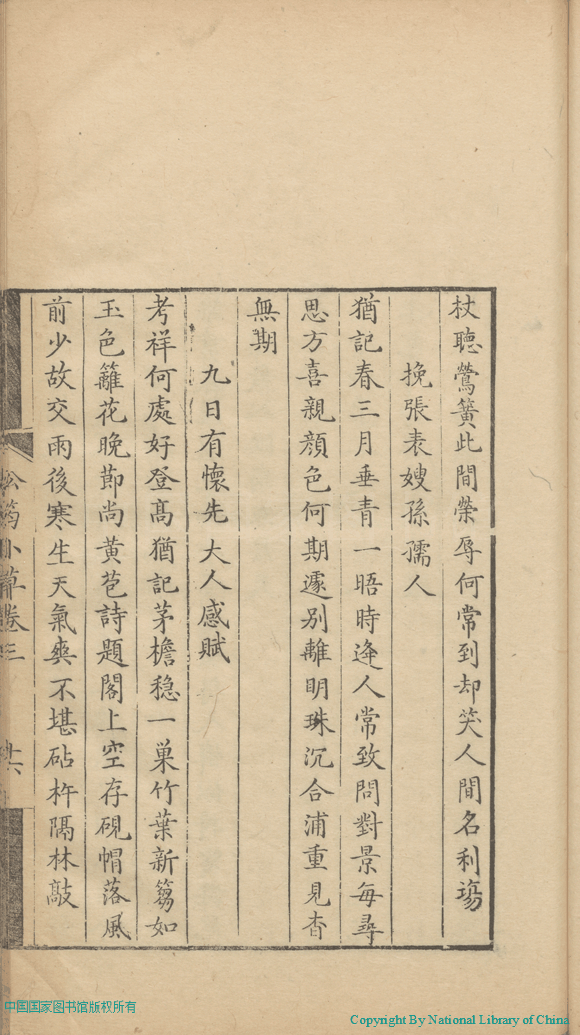 杖聽鶯簧此間榮辱何常到却笑人間名利塲
挽張表嫂孫孺人
猶記春三月垂青一晤時逄人常致問對景每尋
思方喜親顔色何期遽别離明珠沉合浦重見杳
無期
九日有懷先大人感賦
考祥何處好登髙猶記茅檐穏一巢竹葉新篘如
玉色籬花晚節尚黄苞詩題閣上空存硯帽落風
前少故交雨後寒生天氣爽不堪砧杵隔林敲
筠小草卷三
十六
中国国家图书馆版权所有
Copyright By National Library of China